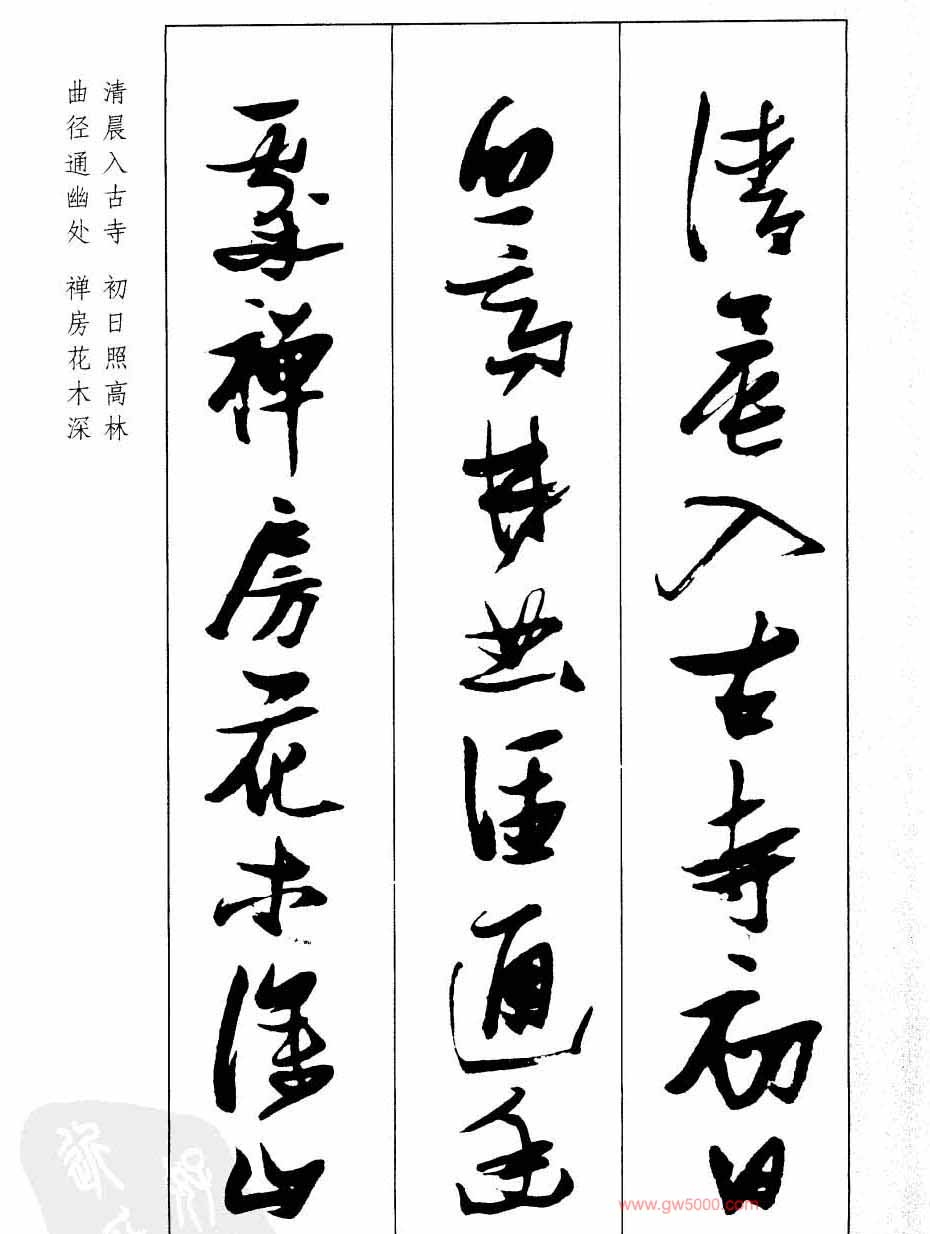 清晨入古寺初日
照高林曲徑通幽
處禪房花木深山
清晨入古寺 初日照高林
曲径通幽处 禅房花木深
www.gw5000.com